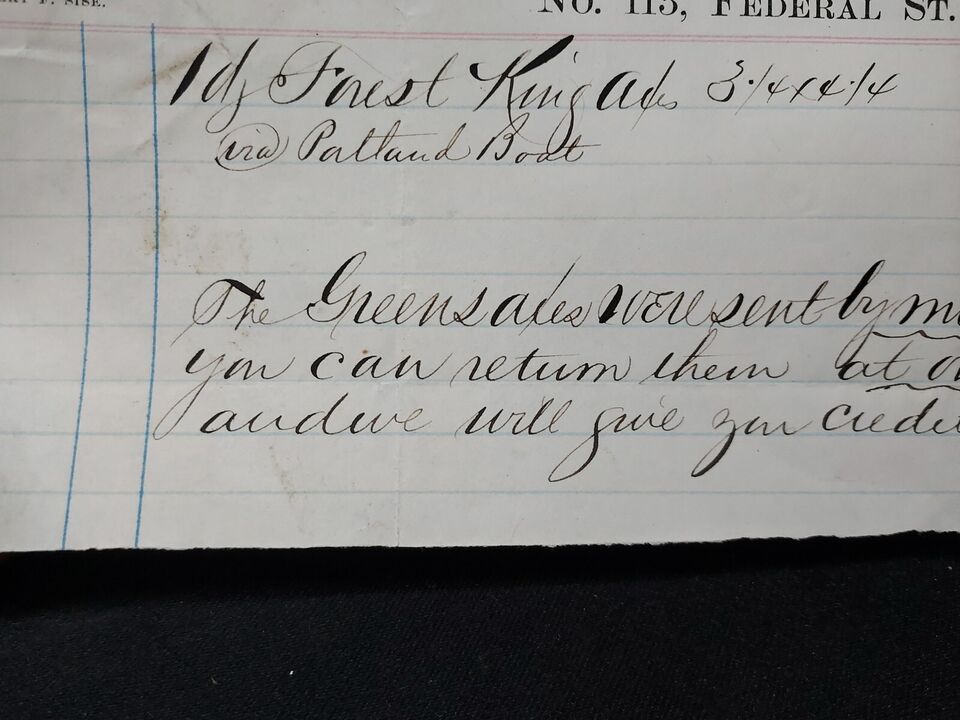 F. SISE.
NO. 115, FEDERAL ST.
1 dz Forest King Axs 3 1/4 x 4 1/4
via Portland Boat
The Greens axes were sent by
you can return them at
and we will give you credit